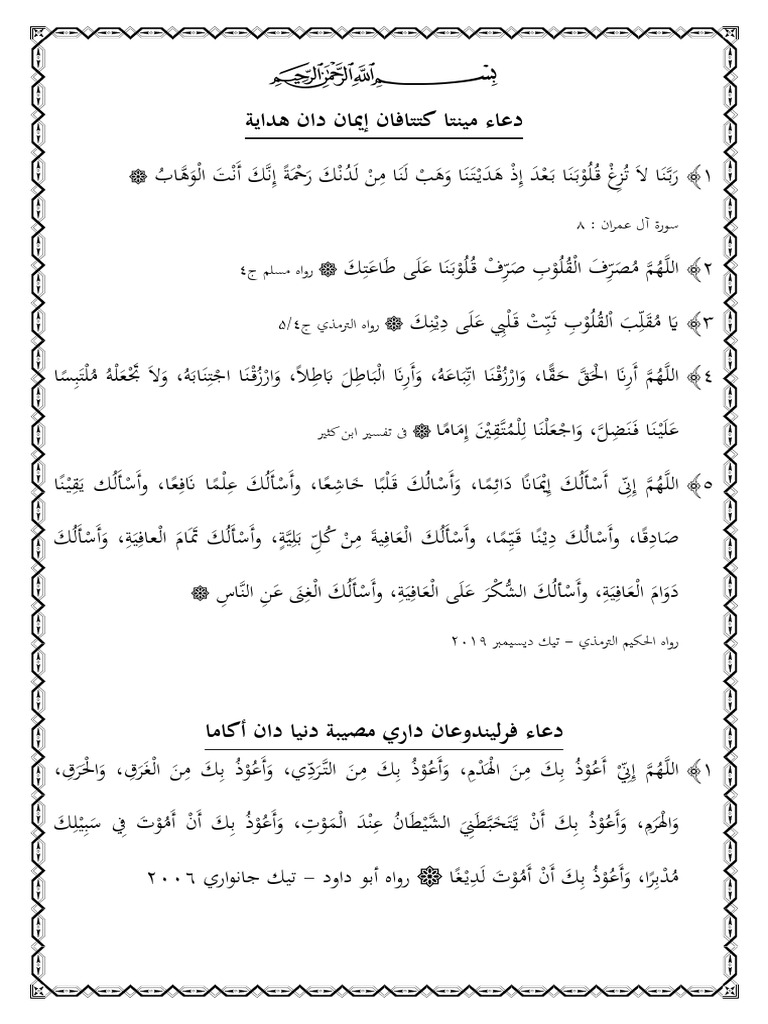 بِسْمِ اللَّهِ الرَّحْمَٰنِ الرَّحِيمِ
دعاء مينتا كتتافان إيمان دان هداية
١﴾ رَبَّنَا لاَ تُزِغْ قُلُوْبَنَا بَعْدَ إِذْ هَدَيْتَنَا وَهَبْ لَنَا مِنْ لَدُنْكَ رَحْمَةً إِنَّكَ أَنْتَ الْوَهَّابُ ۞
سورة آل عمران : ٨
٢﴾ اللَّهُمَّ مُصَرِّفَ الْقُلُوْبِ صَرِّفْ قُلُوْبَنَا عَلَى طَاعَتِكَ ۞ رواه مسلم ج٤
٣﴾ يَا مُقَلِّبَ الْقُلُوْبِ ثَبِّتْ قَلْبِي عَلَى دِيْنِكَ ۞ رواه الترمذي ج٥/٤
٤﴾ اللَّهُمَّ أَرِنَا الْحَقَّ حَقًّا، وَارْزُقْنَا اتِّبَاعَهُ، وَأَرِنَا الْبَاطِلَ بَاطِلاً، وَارْزُقْنَا اجْتِنَابَهُ، وَلاَ تَجْعَلْهُ مُلْتَبِسًا
عَلَيْنَا فَنَضِلَّ، وَاجْعَلْنَا لِلْمُتَّقِيْنَ إِمَامًا ۞ فى تفسير ابن كثير
٥﴾ اللَّهُمَّ إِنِّي أَسْأَلُكَ إِيْمَانًا دَائِمًا، وَأَسْالُكَ قَلْبًا خَاشِعًا، وأَسْأَلُكَ عِلْمًا نَافِعًا، وأَسْأَلُك يَقِيْنًا
صَادِقًا، وأَسْالُكَ دِيْنًا قَيِّمًا، وأَسْأَلُكَ الْعَافِيةَ مِنْ كُلِّ بَلِيَّةٍ، وأَسْأَلُكَ تَمَامَ الْعافِيَةِ، وَأَسْأَلُكَ
دَوَامَ الْعَافِيَةِ، وأَسْأَلُكَ الشُّكْرَ عَلَى الْعَافِيَةِ، وأَسْأَلُكَ الْغِنَى عَنِ النَّاسِ ۞
رواه الحكيم الترمذي – تيك ديسيمبر ٢٠١٩
دعاء فرليندوعان داري مصيبة دنيا دان أكاما
١﴾ اللَّهُمَّ إِنِيّْ أَعُوْذُ بِكَ مِنَ الْهَدْمِ، وَأَعُوْذُ بِكَ مِنَ التَّرَدِّي، وَأَعُوْذُ بِكَ مِنَ الْغَرَقِ، وَالْحَرَقِ،
وَالْهَرَمِ، وَأَعُوْذُ بِكَ أَنْ يَّتَخَبَّطَنِيَ الشَّيْطَانُ عِنْدَ الْمَوْتِ، وَأَعُوْذُ بِكَ أَنْ أَمُوْتَ فِي سَبِيْلِكَ
مُدْبِرًا، وَأَعُوْذُ بِكَ أَنْ أَمُوْتَ لَدِيْغًا ۞ رواه أبو داود – تيك جانواري ٢٠٠٦